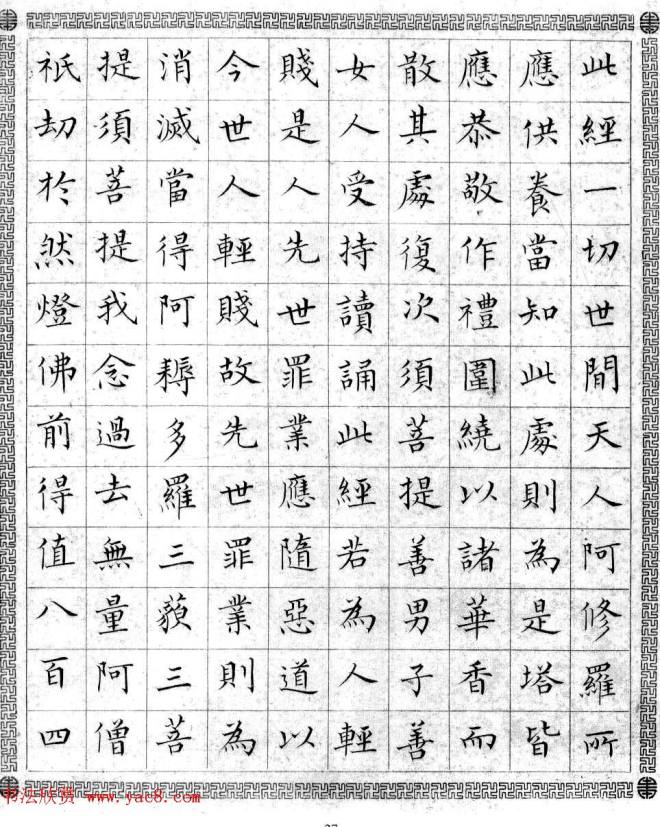 此經一切世間天人阿修羅所
應供養當知此處則為是塔皆
應恭敬作禮圍繞以諸華香而
散其處復次須菩提善男子善
女人受持讀誦此經若為人輕
賤是人先世罪業應隨惡道以
今世人輕賤故先世罪業則為
消滅當得阿耨多羅三藐三菩
提須菩提我念過去無量阿僧
祇劫於然燈佛前得值八百四
书法欣赏 www.yac8.com
27